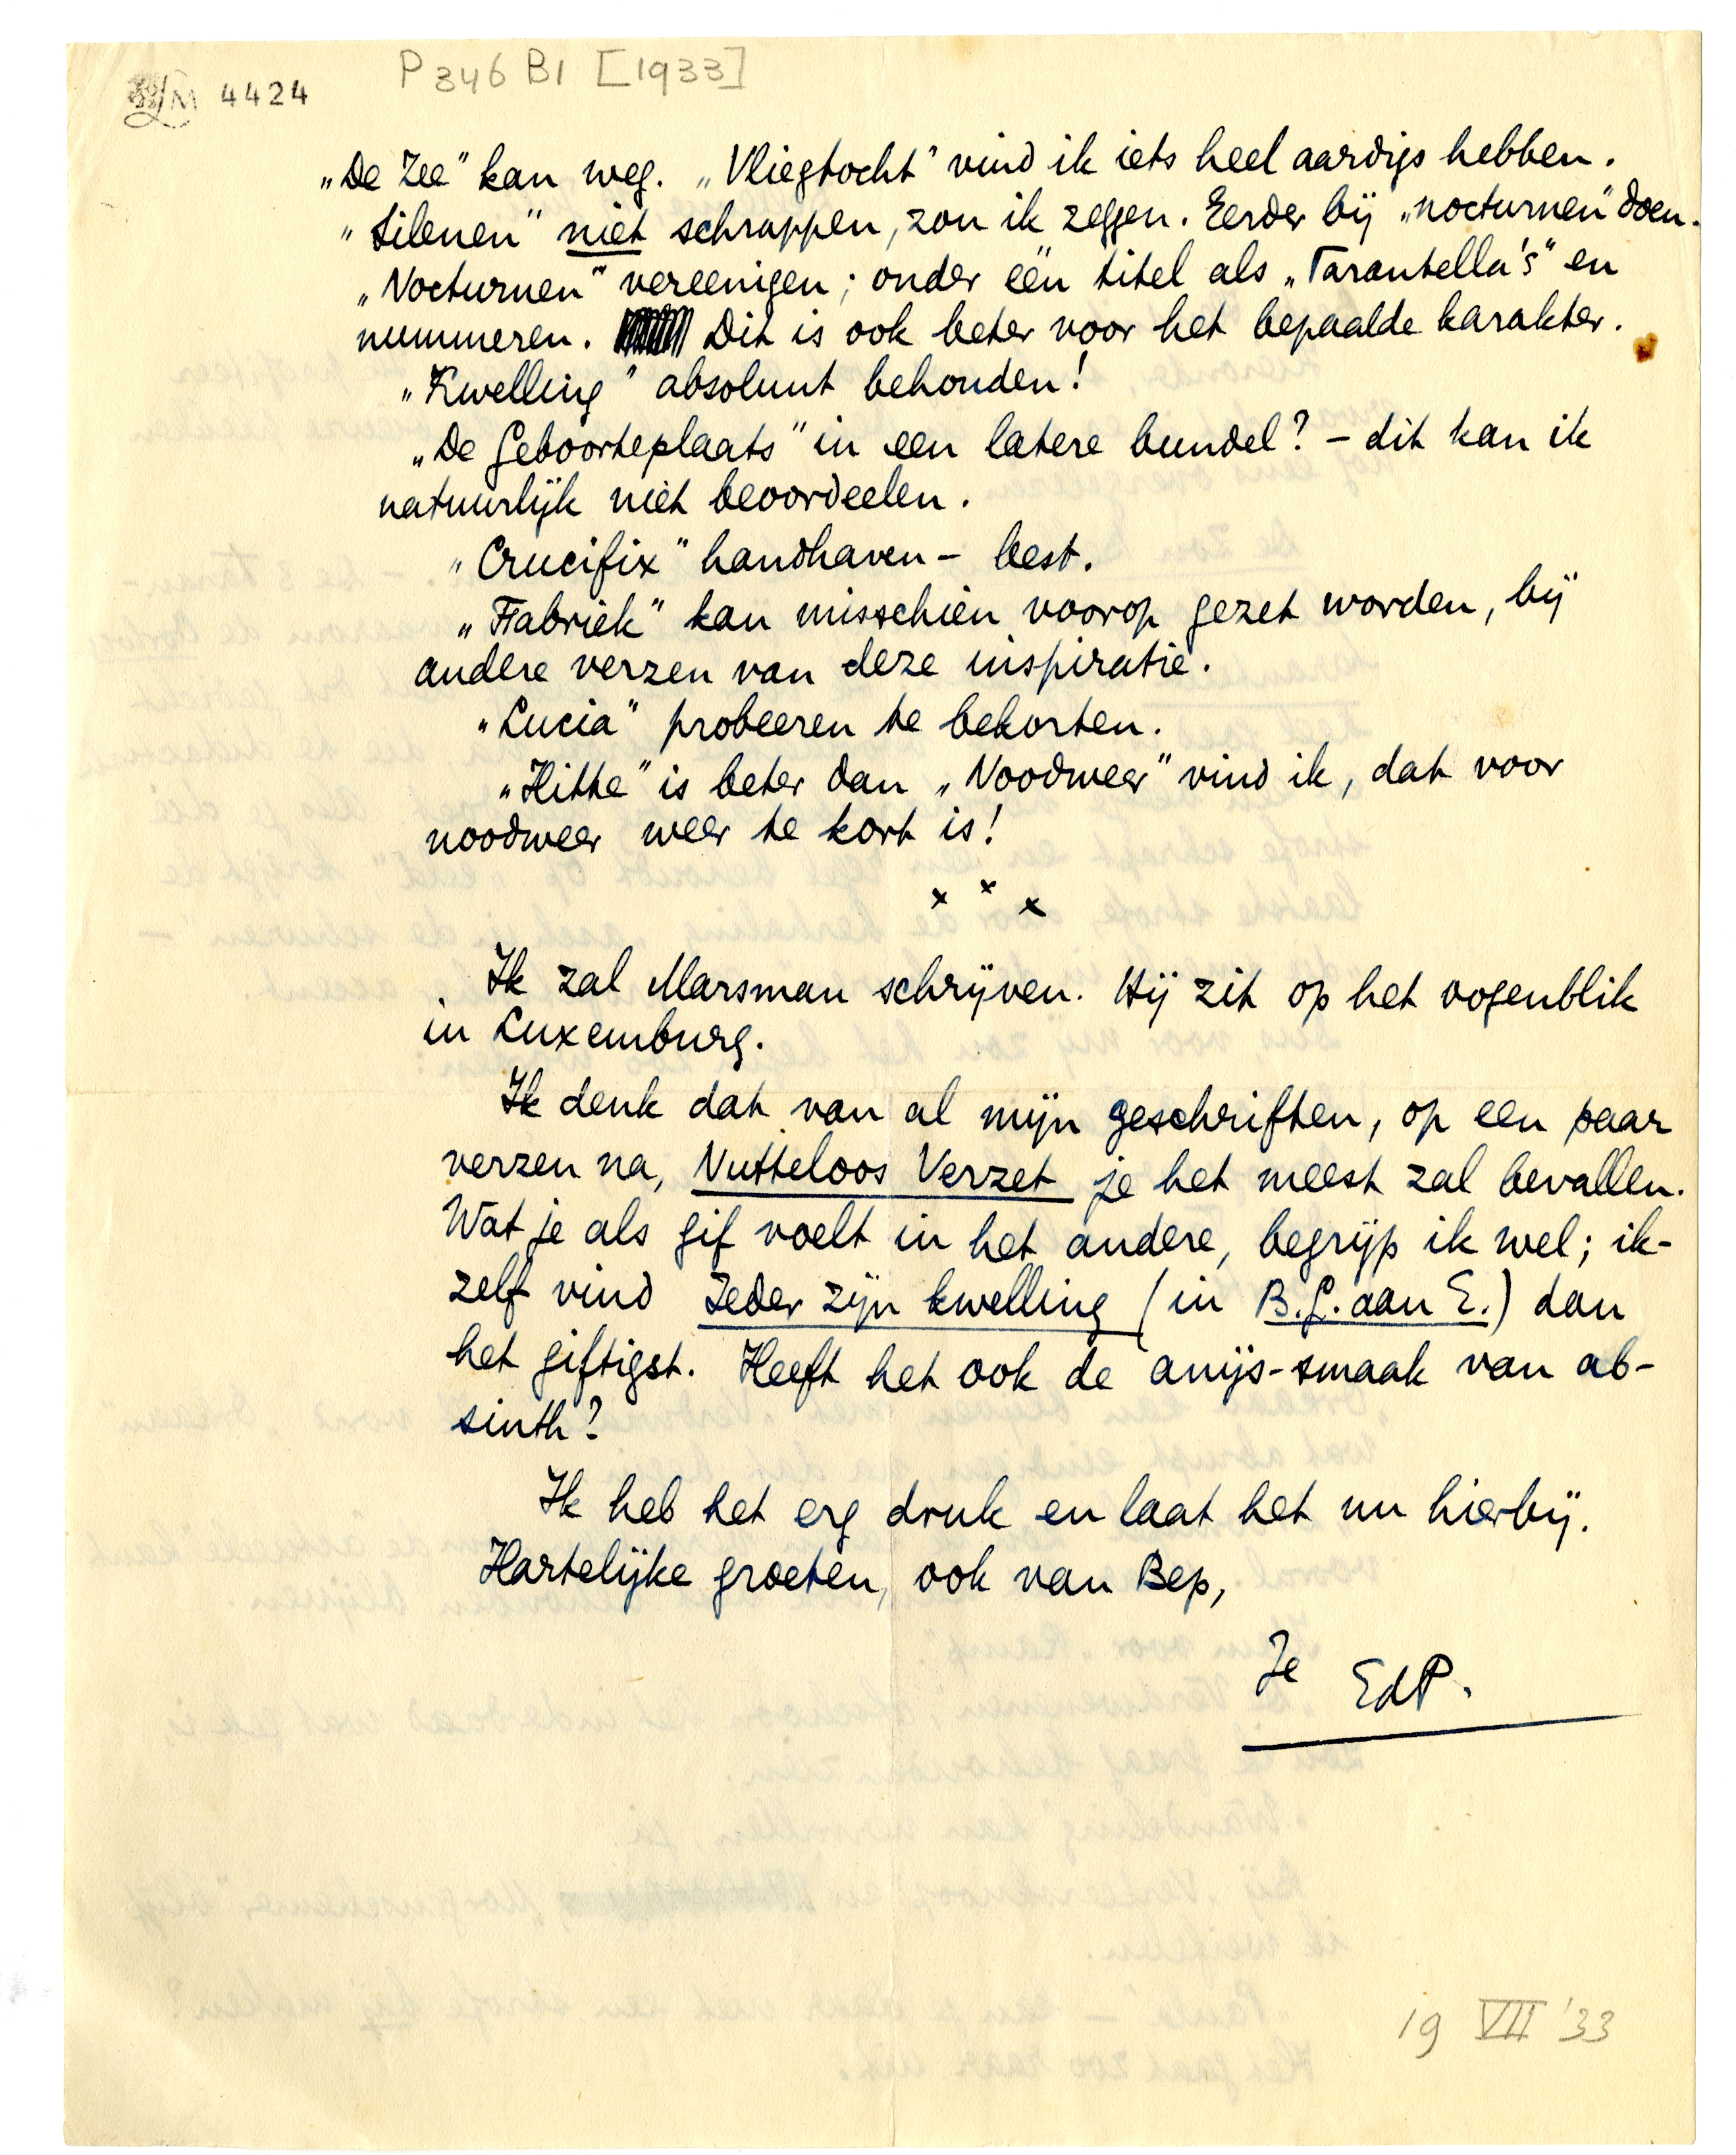 4424
P 346 B1 [1933]
„De Zee" kan weg. „Vliegtocht" vind ik iets heel aardigs hebben.
„Silenen" niet schrappen, zou ik zeggen. Eerder bij „nocturnen" doen.
„Nocturnen" vereenigen; onder één titel als „Tarantella's" en
nummeren. Dit is ook beter voor het bepaalde karakter.
„Kwelling" absoluut behouden!
„De Geboorteplaats" in een latere bundel? – dit kan ik
natuurlijk niet beoordeelen.
„Crucifix" handhaven – best.
„Fabriek" kan misschien voorop gezet worden, bij
andere verzen van deze inspiratie.
„Lucia" probeeren te bekorten.
„Hitte" is beter dan „Noodweer" vind ik, dat voor
noodweer weer te kort is!
x x x
Ik zal Marsman schrijven. Hij zit op het oogenblik
in Luxemburg.
Ik denk dat van al mijn geschriften, op een paar
verzen na, Nutteloos Verzet je het meest zal bevallen.
Wat je als gif voelt in het andere, begrijp ik wel; ik-
zelf vind Ieder zijn kwelling (in B.G. aan E.) dan
het giftigst. Heeft het ook de anijs-smaak van ab-
sinth?
Ik heb het erg druk en laat het nu hierbij.
Hartelijke groeten, ook van Bep,
Je EdP.
19 VII '33